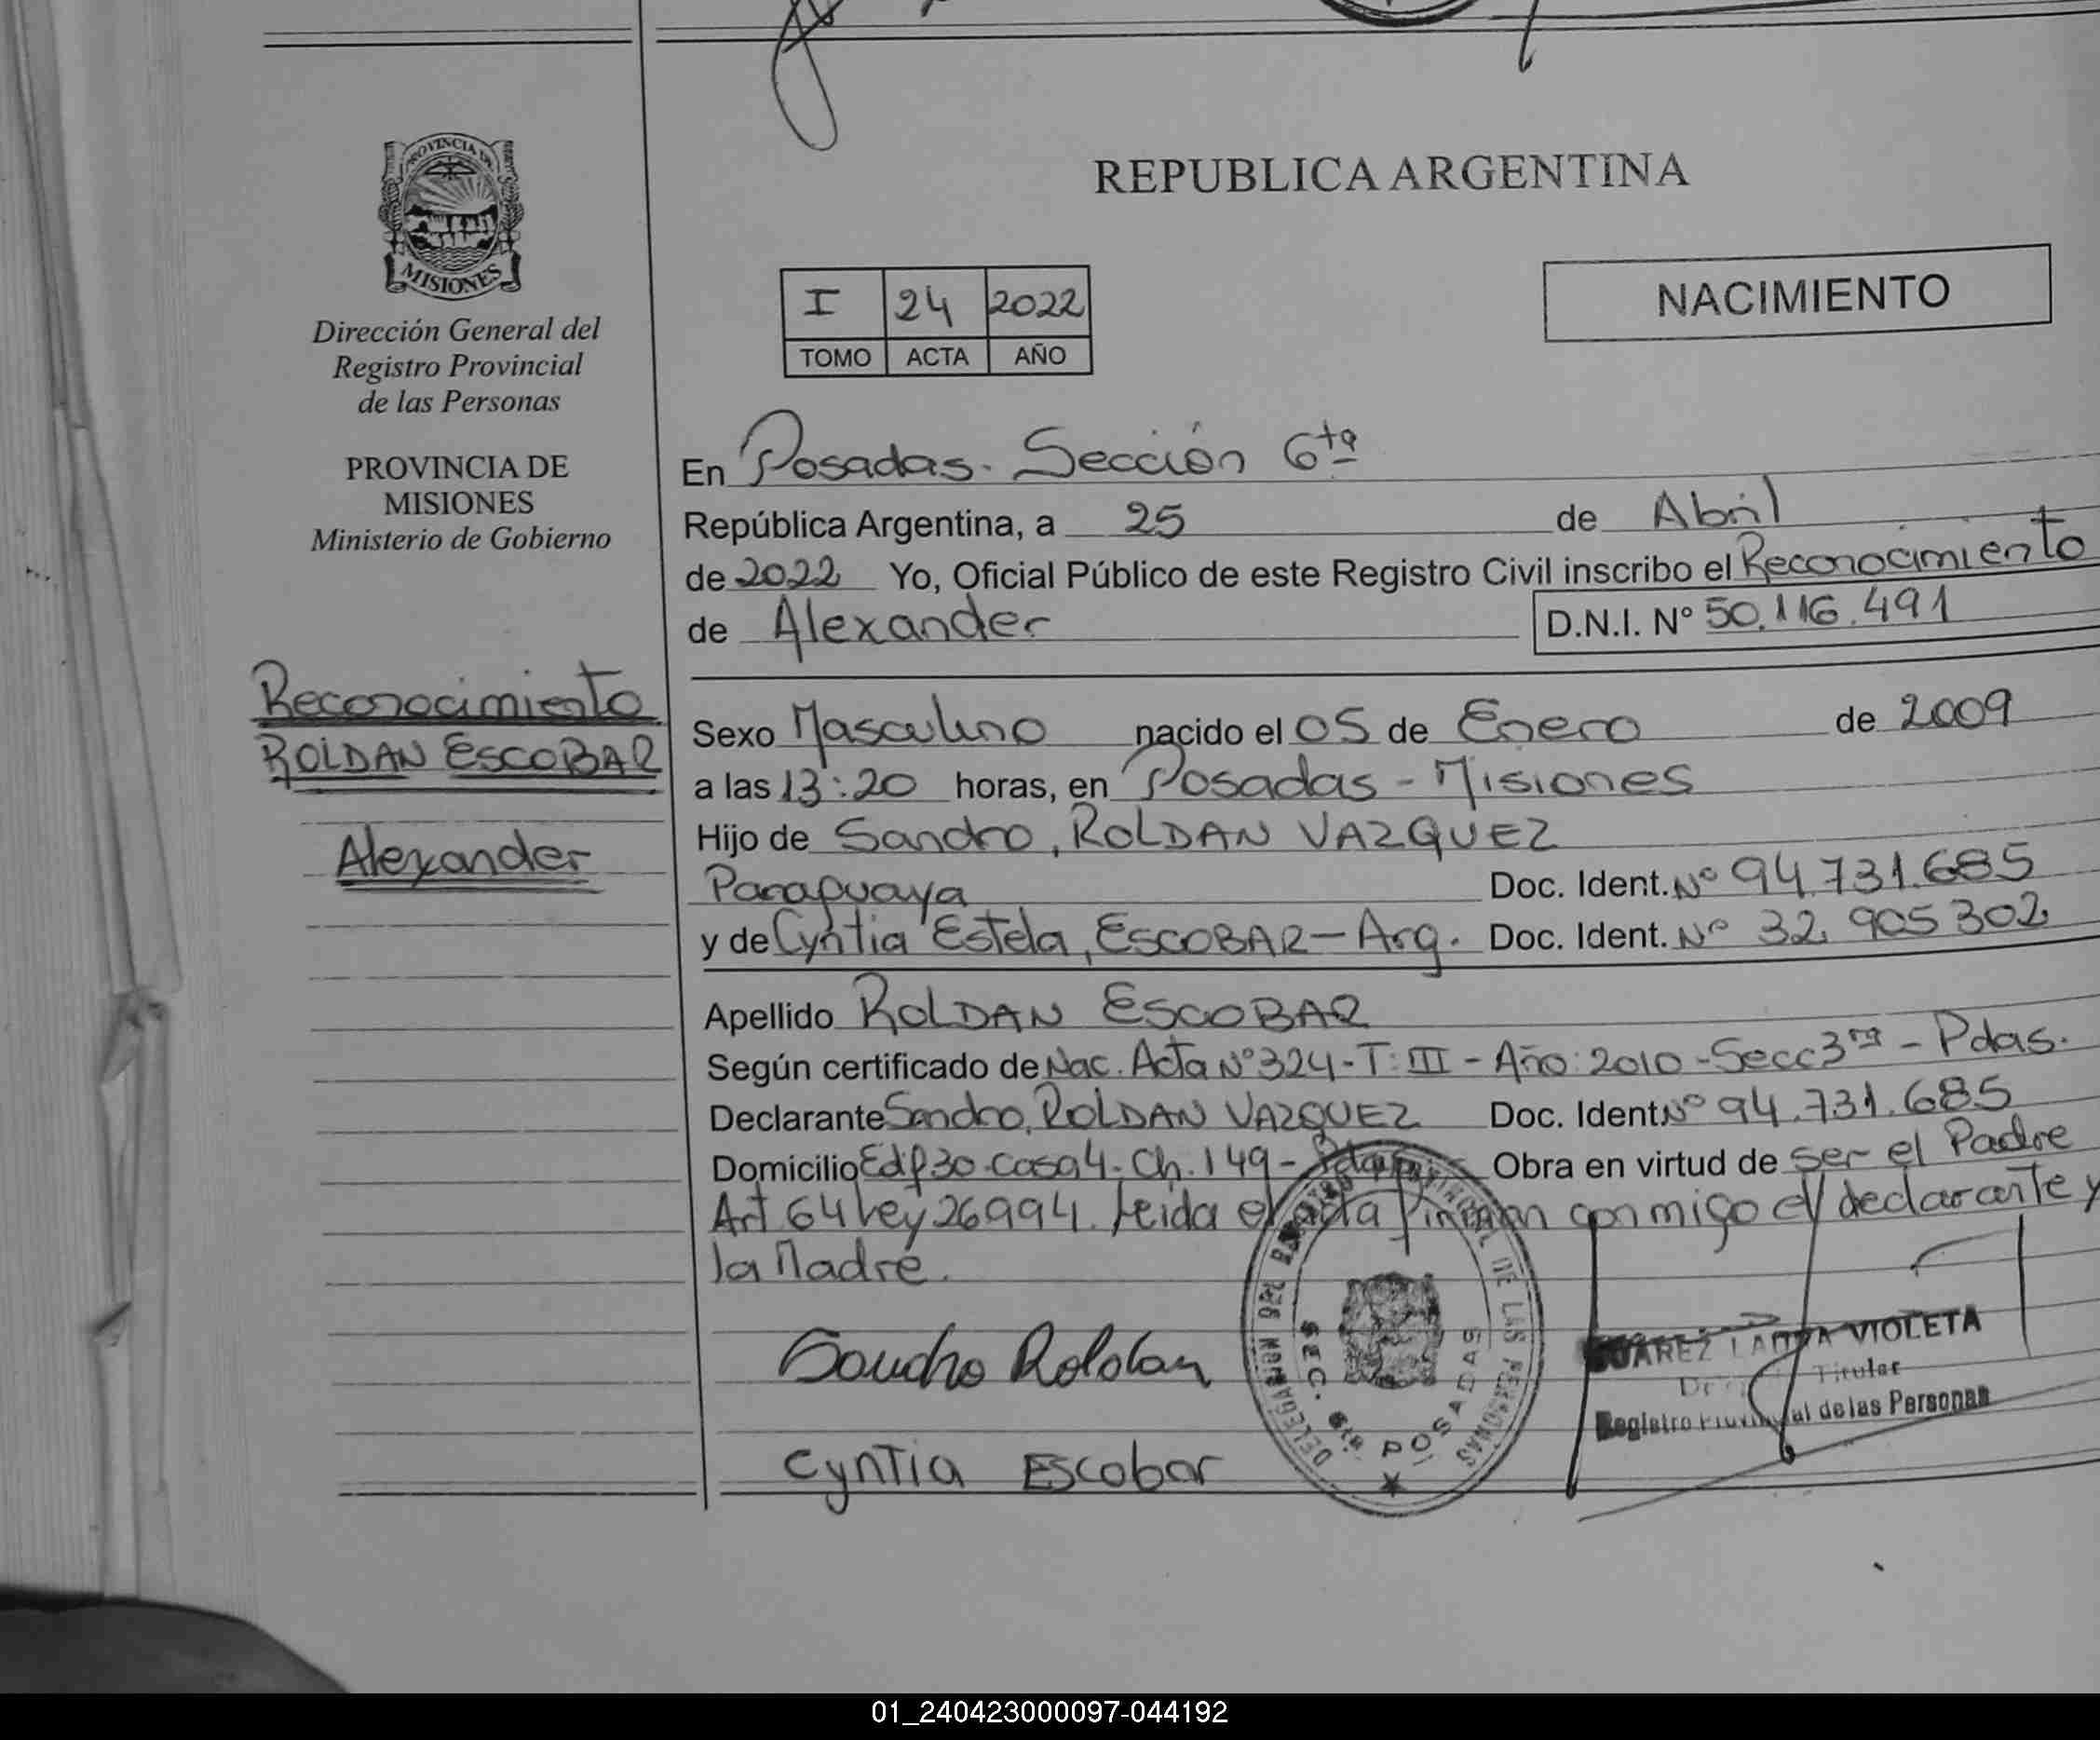 PROVINCIA DE
MISIONES
Dirección General del
Registro Provincial
de las Personas
PROVINCIA DE
MISIONES
Ministerio de Gobierno
Reconocimiento
ROLDAN ESCOBAR
Alexander
REPUBLICA ARGENTINA
I 24 2022
TOMO ACTA AÑO
NACIMIENTO
En Posadas. Sección 6ta
República Argentina, a 25 de Abril
de 2022 Yo, Oficial Público de este Registro Civil inscribo el Reconocimiento
de Alexander D.N.I. Nº 50.116.491
Sexo Masculino nacido el 05 de Enero de 2009
a las 13:20 horas, en Posadas - Misiones
Hijo de Sandro, ROLDAN VAZQUEZ
Paraguaya Doc. Ident. Nº 94.731.685
y de Cyntia Estela, ESCOBAR - Arg. Doc. Ident. Nº 32.905302
Apellido ROLDAN ESCOBAR
Según certificado de Nac. Acta Nº 324 - T: III - Año: 2010 - Secc 3ra - Pdas.
Declarante Sandro, ROLDAN VAZQUEZ Doc. Ident. Nº 94.731.685
Domicilio Edif 30 - casa 4 - Ch. 149 - Pdas Obra en virtud de ser el Padre
Art 64 Ley 26994. Leida el acta firman conmigo el declarante y
la Madre.
Sandro Roldan
Cyntia Escobar
DE LAS PERSONAS
SEC. 6ta. POSADAS
SUAREZ LAURA VIOLETA
Titular
Registro Provincial de las Personas
01_240423000097-044192